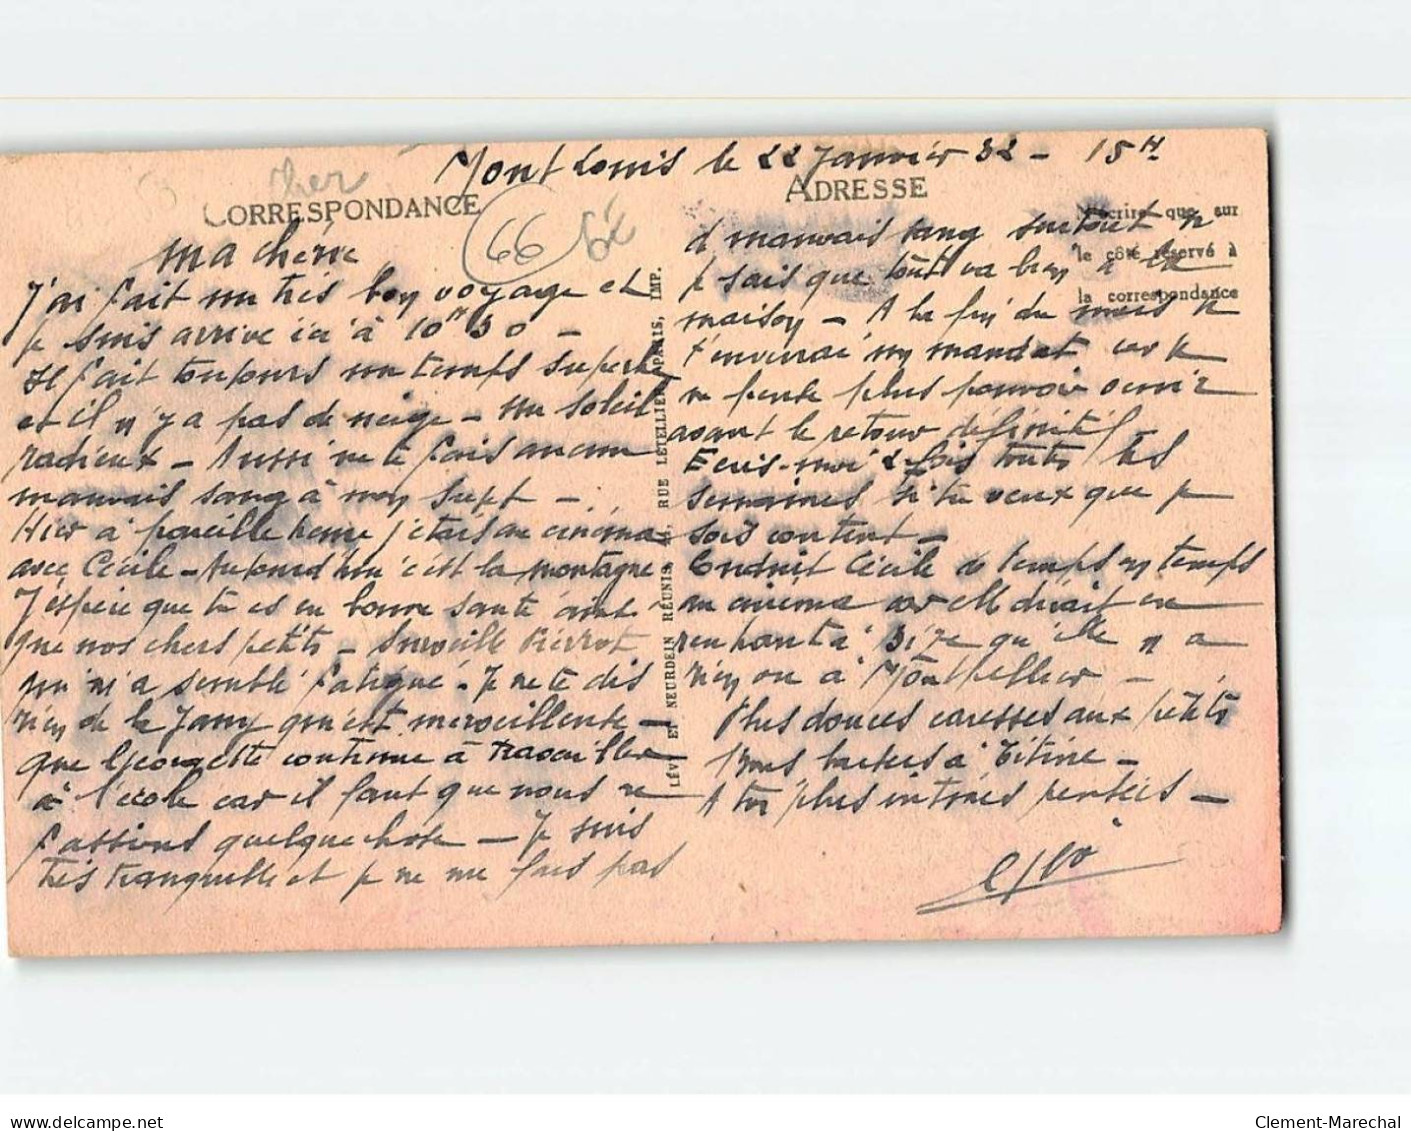 Mont Louis le 22 Janvier 32 - 15H
cher
CORRESPONDANCE
66
ma chérie
J'ai fait un très bon voyage et
je suis arrivé ici à 10h30 -
Il fait toujours un temps superbe
et il n'y a pas de neige - Un soleil
radieux - Aussi ne te fais aucun
mauvais sang à mon sujet -
Hier à pareille heure j'étais au cinéma
avec Cécile - Aujourd'hui c'est la montagne
J'espère que tu es en bonne santé ainsi
que nos chers petits - Surveille Pierrot
qui m'a semblé fatigué. Je ne te dis
rien de la Jany qui est merveilleuse -
que Georgette continue à travailler
à l'école car il faut que nous en
fassions quelque chose - Je suis
très tranquille et je ne me fais pas
LÉVY ET NEURDEIN RÉUNIS, 44, RUE LETELLIER, PARIS, IMP.
ADRESSE
N'écrire que sur
le côté réservé à
la correspondance
d mauvais sang surtout si
je sais que tout va bien à la
maison - A la fin du mois je
t'enverrai un mandat car je
ne pense plus pouvoir venir
avant le retour définitif -
Ecris-moi 2 fois toutes les
semaines si tu veux que je
sois content -
Conduit Cécile de temps en temps
au cinéma car elle disait en
rentrant à Bize qu'elle n'a
rien vu à Montpellier -
Plus douces caresses aux petits
Bons baisers à Titine -
A toi plus intimes pensées -